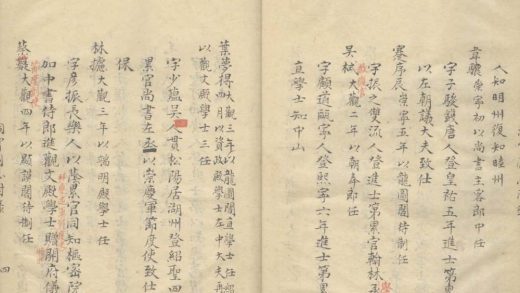 人知明州復知睦州
韋驤 崇寧初以尚書主客郎中任
字子駿錢唐人登皇祐五年進士第
以左朝議大夫致仕
蹇序辰 崇寧五年以龍圖閣待制任
字振之雙流人登進士第累官翰林
吳栻 大觀二年以朝奉郎任
字顧道甌寧人登熙寧六年進士第累
直學士知中山
葉夢得 大觀三年以龍圖閣直學士任紹
四月以資政殿學士左中大夫再
以觀文殿學士三任
字少蘊吳人貫松陽居湖州登紹聖四
累官尚書左丞以崇慶軍節度使致仕
保
林攄 大觀三年以端明殿學士任
字彥振長樂人以蔭累官同知樞密院
如中書侍郎進觀文殿學士贈開府儀
大觀四年以顯謨閣待制任
四